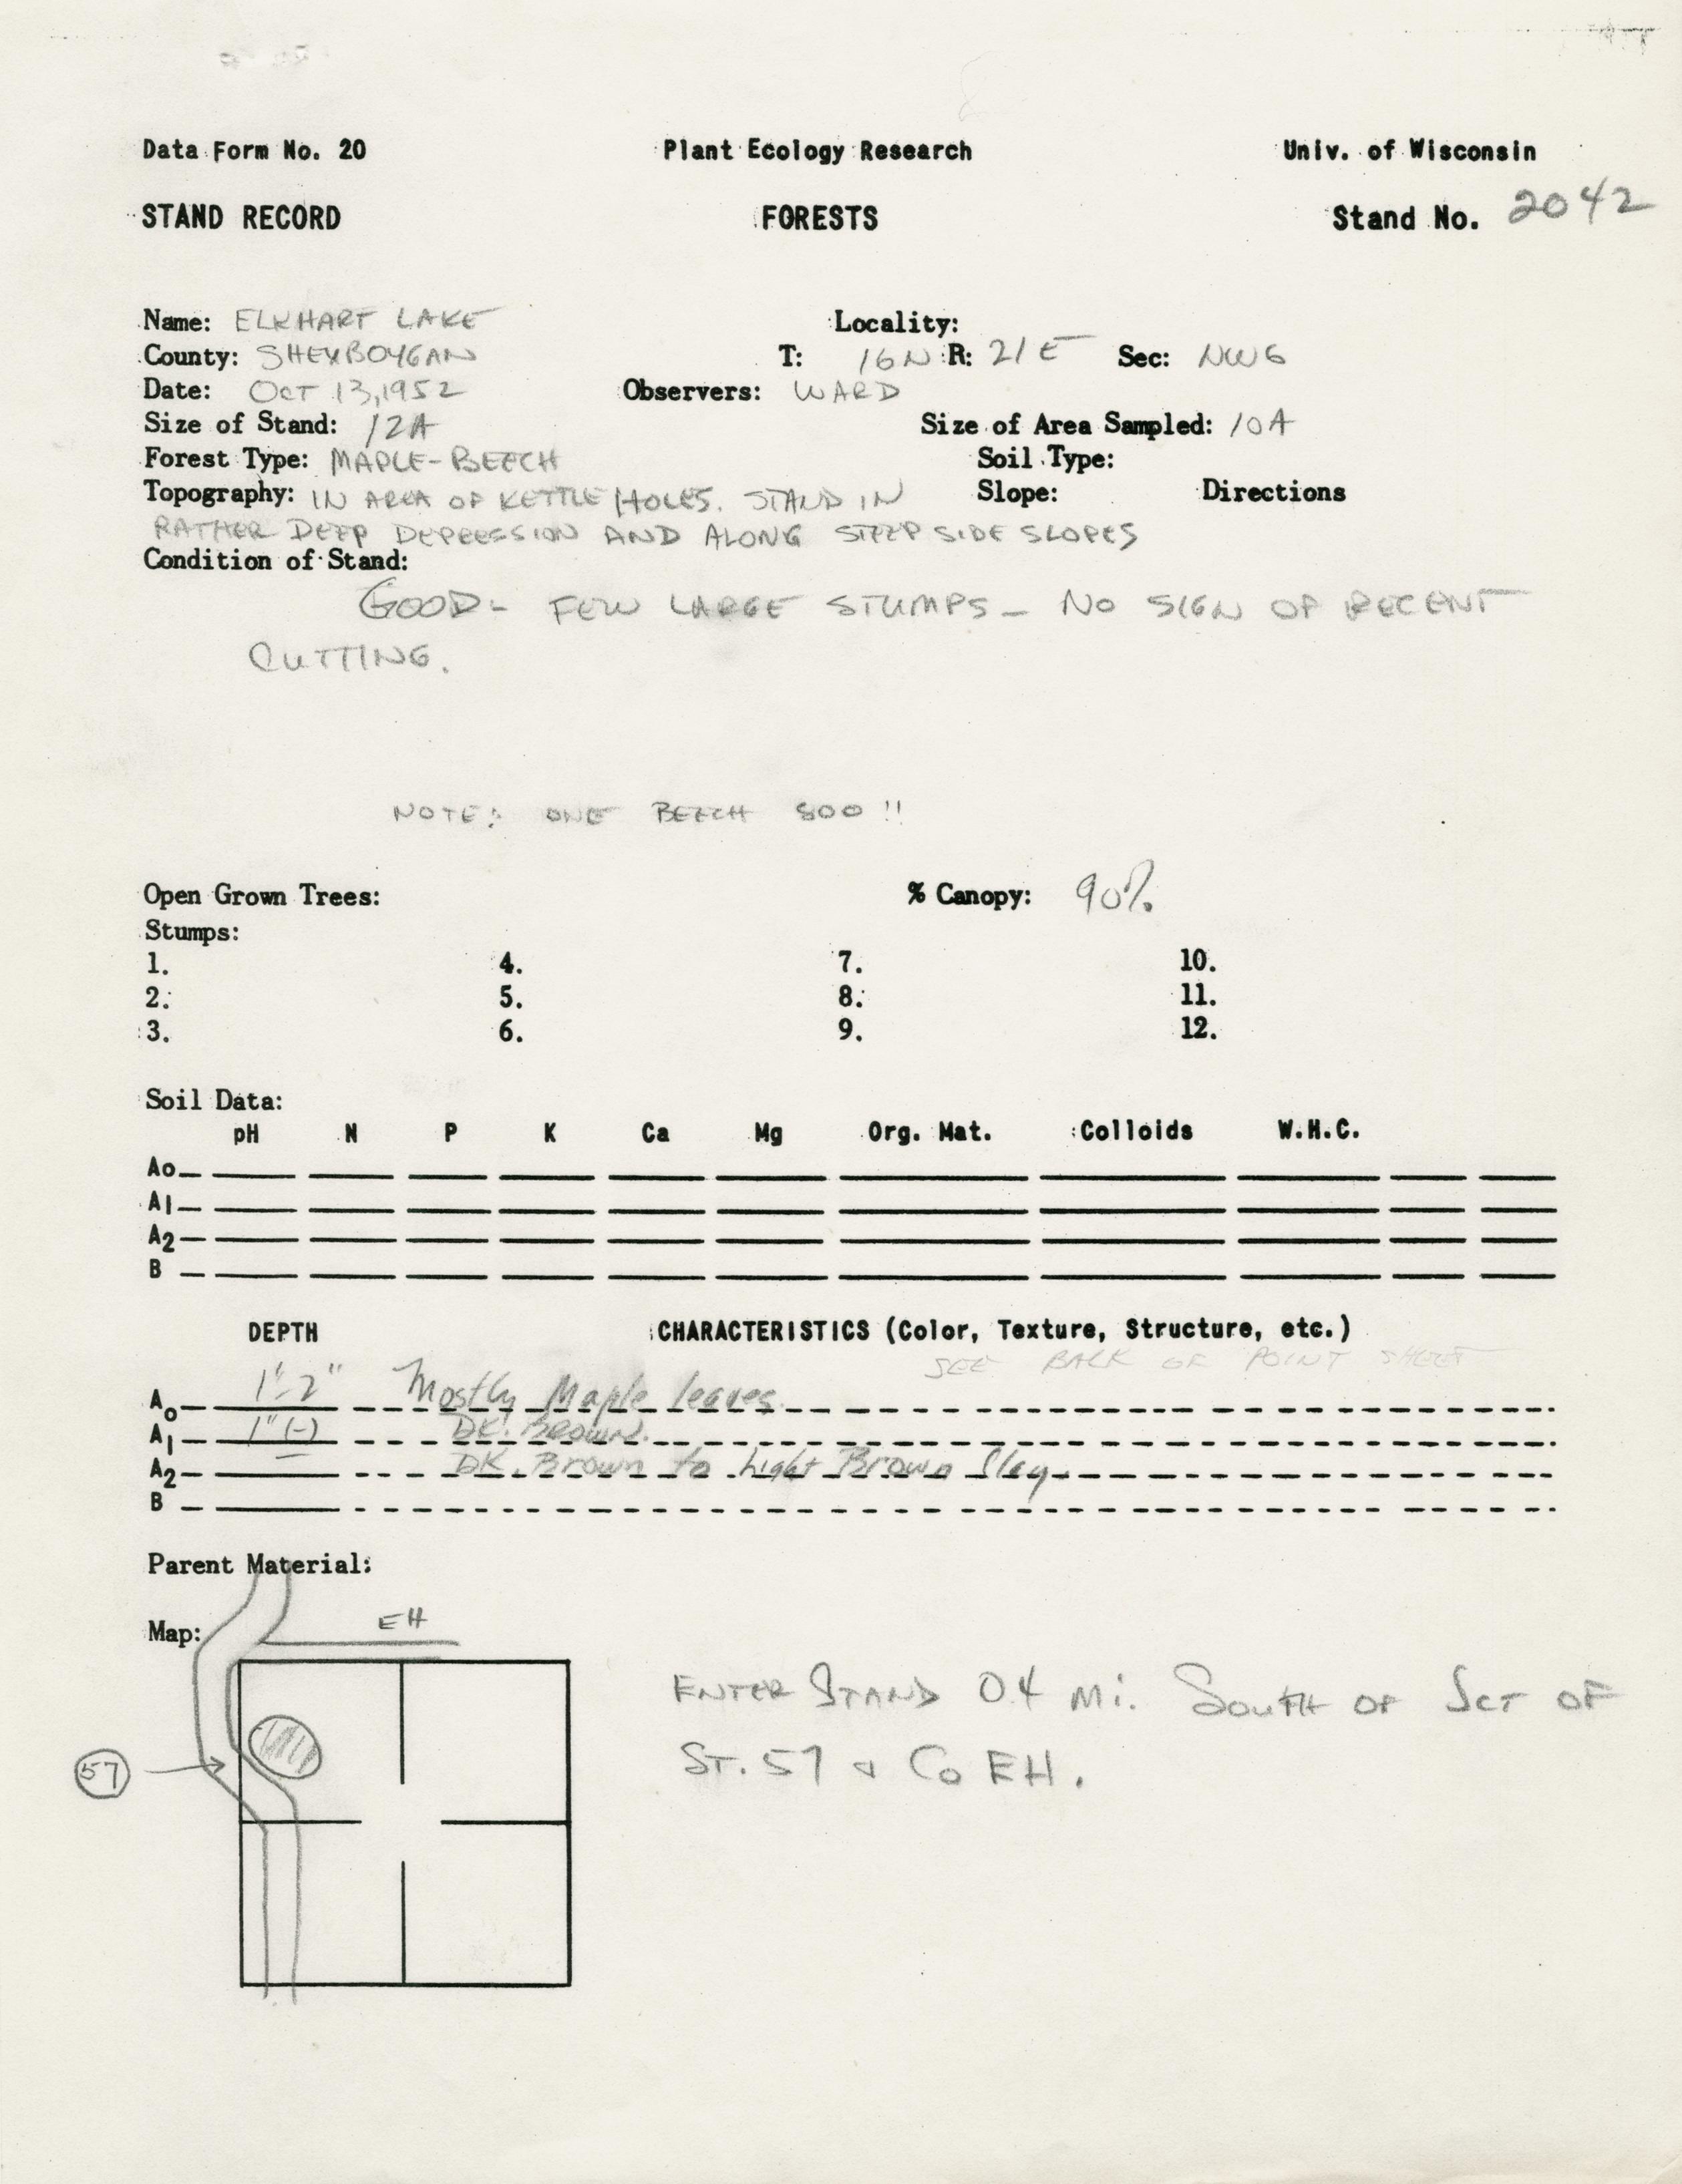 Data Form No. 20 Plant Ecology Research Univ. of Wisconsin
STAND RECORD FORESTS Stand No. 2042
Name: ELKHART LAKE Locality:
County: SHEYBOYGAN T: 16N R: 21E Sec: NW6
Date: OCT 13, 1952 Observers: WARD
Size of Stand: 12A Size of Area Sampled: 10A
Forest Type: MAPLE-BEECH Soil Type:
Topography: IN AREA OF KETTLE HOLES. STAND IN Slope: Directions
RATHER DEEP DEPRESSION AND ALONG STEEP SIDE SLOPES
Condition of Stand:
GOOD- FEW LARGE STUMPS- NO SIGN OF RECENT
CUTTING.
NOTE: ONE BEECH 800 !!
Open Grown Trees: % Canopy: 90%
Stumps:
1. 4. 7. 10.
2. 5. 8. 11.
3. 6. 9. 12.
Soil Data:
pH N P K Ca Mg Org. Mat. Colloids W.H.C.
Ao
A1
A2
B
DEPTH CHARACTERISTICS (Color, Texture, Structure, etc.)
SEE BACK OF POINT SHEET
Ao 1"-2" Mostly Maple leaves
A1 1"(-) DK. BROWN.
A2 DK. Brown to Light Brown Clay.
B
Parent Material:
Map: EH
ENTER STAND 0.4 Mi. South OF JCT OF
57 ST. 57 & Co EH.